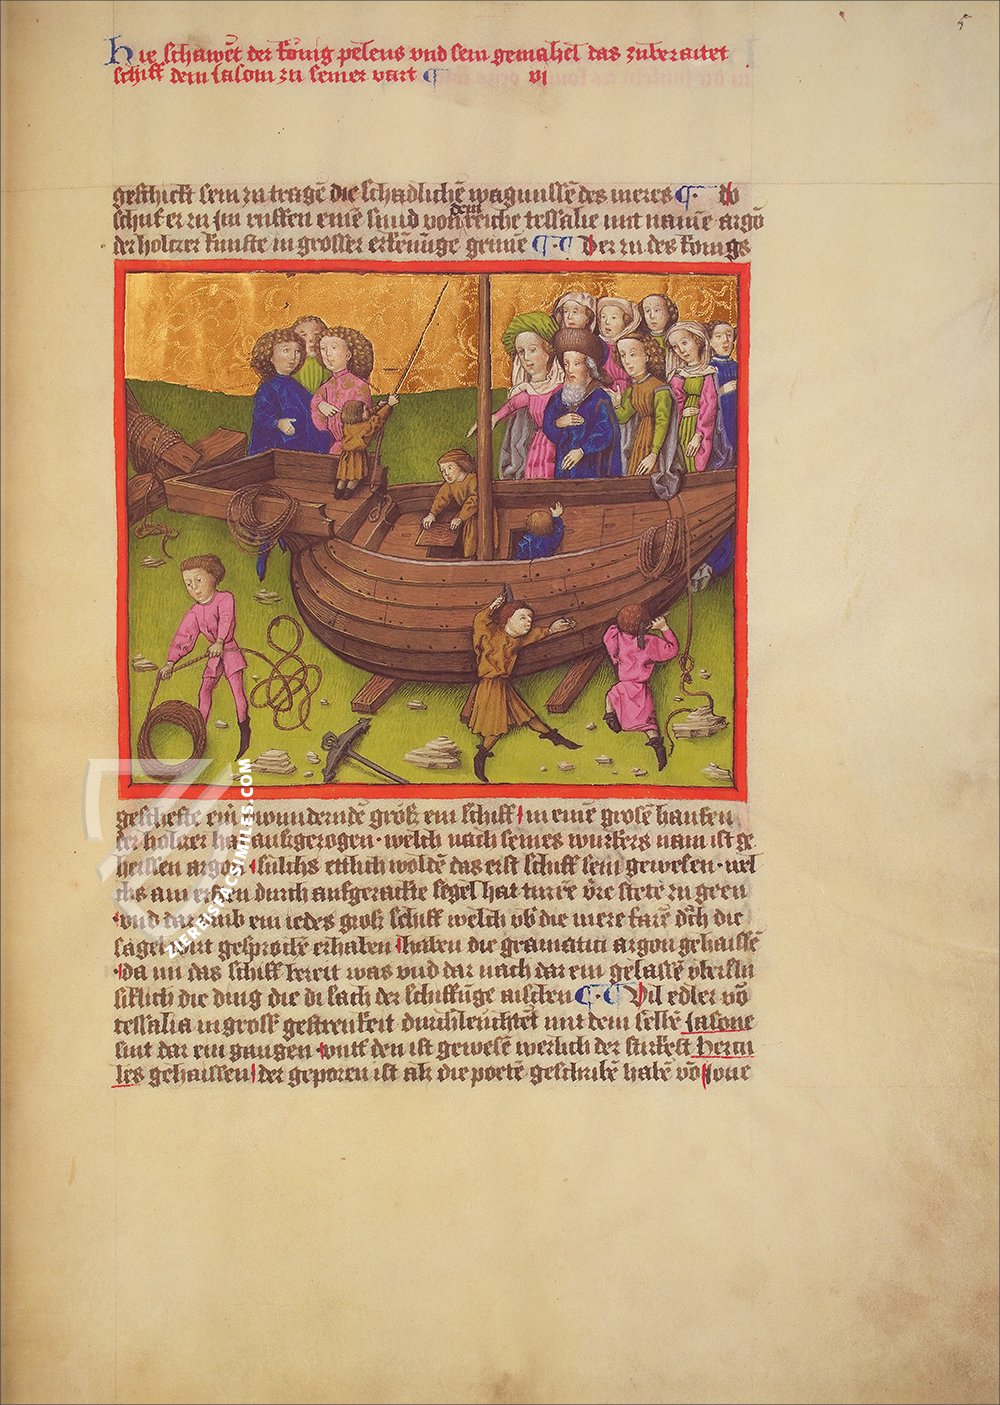 5
Hie schawet der kőnig peleus vnd sein gemahel das zuberaitet
schiff dem Jasom zu seiner vart ¶ vi
geschickt sein zu tragē die schadlichē wagnussē des meres ¶· do
schuf er zu im ruffen einē sinnd von dem reiche tessalie mit namē argō
der holtzer kunste in grosser erkēnūge genuē ¶·¶ Der zu des konigs
geschefte ein wundernde grőß ein schiff in einē grosen hauffen
der holtzer hat außgezogen· welch nach seines wurkers nam ist ge
heissen argon sulichs ettlich woldē das erst schiff seind gewesen· wel
chs am ersten durch aufgerackte segel hat turrē vire stetē zu geen
vnd dar umb ein iedes groß schiff welch vb̄ die mere farē durch die
sage wirt gesprochē erhaben haben die gramatici argon gehaissē
da nu das schiff bereit was vnd dar nach dar ein gelassē vberflu
siklich die ding die di sach der schiffūge aischen ¶·¶ Vil edler vō
tessalia in groß gestrenkeit durchleuchtet mit dem selbē Jasone
sint dar ein gangen vntt den ist gewesē werlich der sterkest Hercu
les gehaissen der geporen ist als die poetē geschribē habē vō Joue
ZIEREIS FACSIMILES.COM